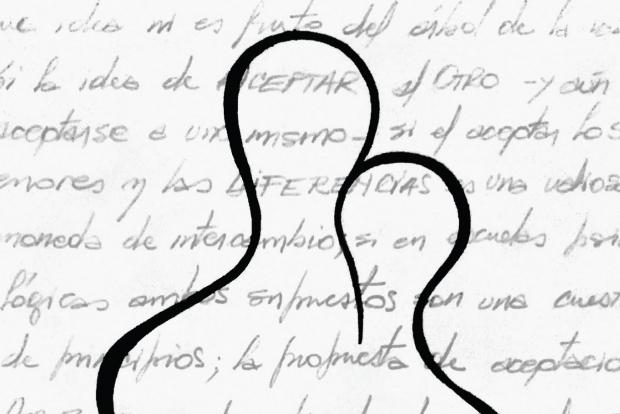 idea ni es fruto del árbol de la
la idea de ACEPTAR al OTRO - y aún
aceptarse a uno mismo - si el aceptar los
y las DIFERENCIAS es una valiosa
moneda de intercambio, si en escuelas
lógicas ambos supuestos son una
de principios; la propuesta de